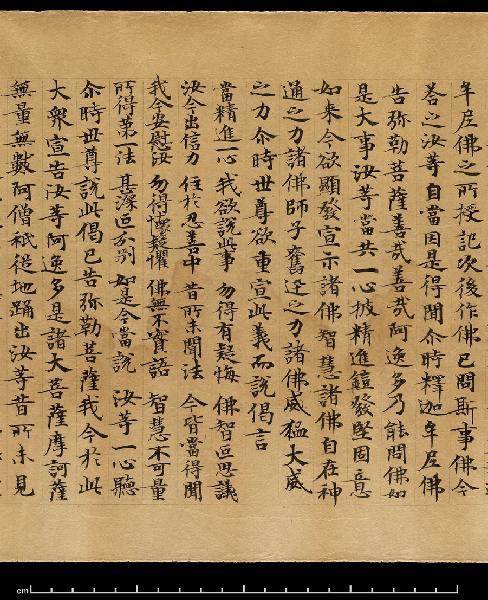 牟尼佛之所授記次後作佛已問斯事佛今
荅之汝等自當因是得聞尒時釋迦牟尼佛
告弥勒菩薩善㢤善㢤阿逸多乃能問佛如
是大事汝等當共一心披精進鎧發堅固意
如來今欲顯發宣示諸佛智慧諸佛自在神
通之力諸佛師子奮迅之力諸佛威猛大威
之力尒時世尊欲重宣此義而說偈言
當精進一心 我欲說此事 勿得有疑悔 佛智叵思議
汝今出信力 住於忍善中 昔所未聞法 今皆當得聞
我今安慰汝 勿得懷疑懼 佛無不實語 智慧不可量
所得第一法 甚深叵分別 如是今當說 汝等一心聽
尒時世尊說此偈已告弥勒菩薩我今於此
大衆宣告汝等阿逸多是諸大菩薩摩訶薩
無量無數阿僧祇從地踊出汝等昔所未見